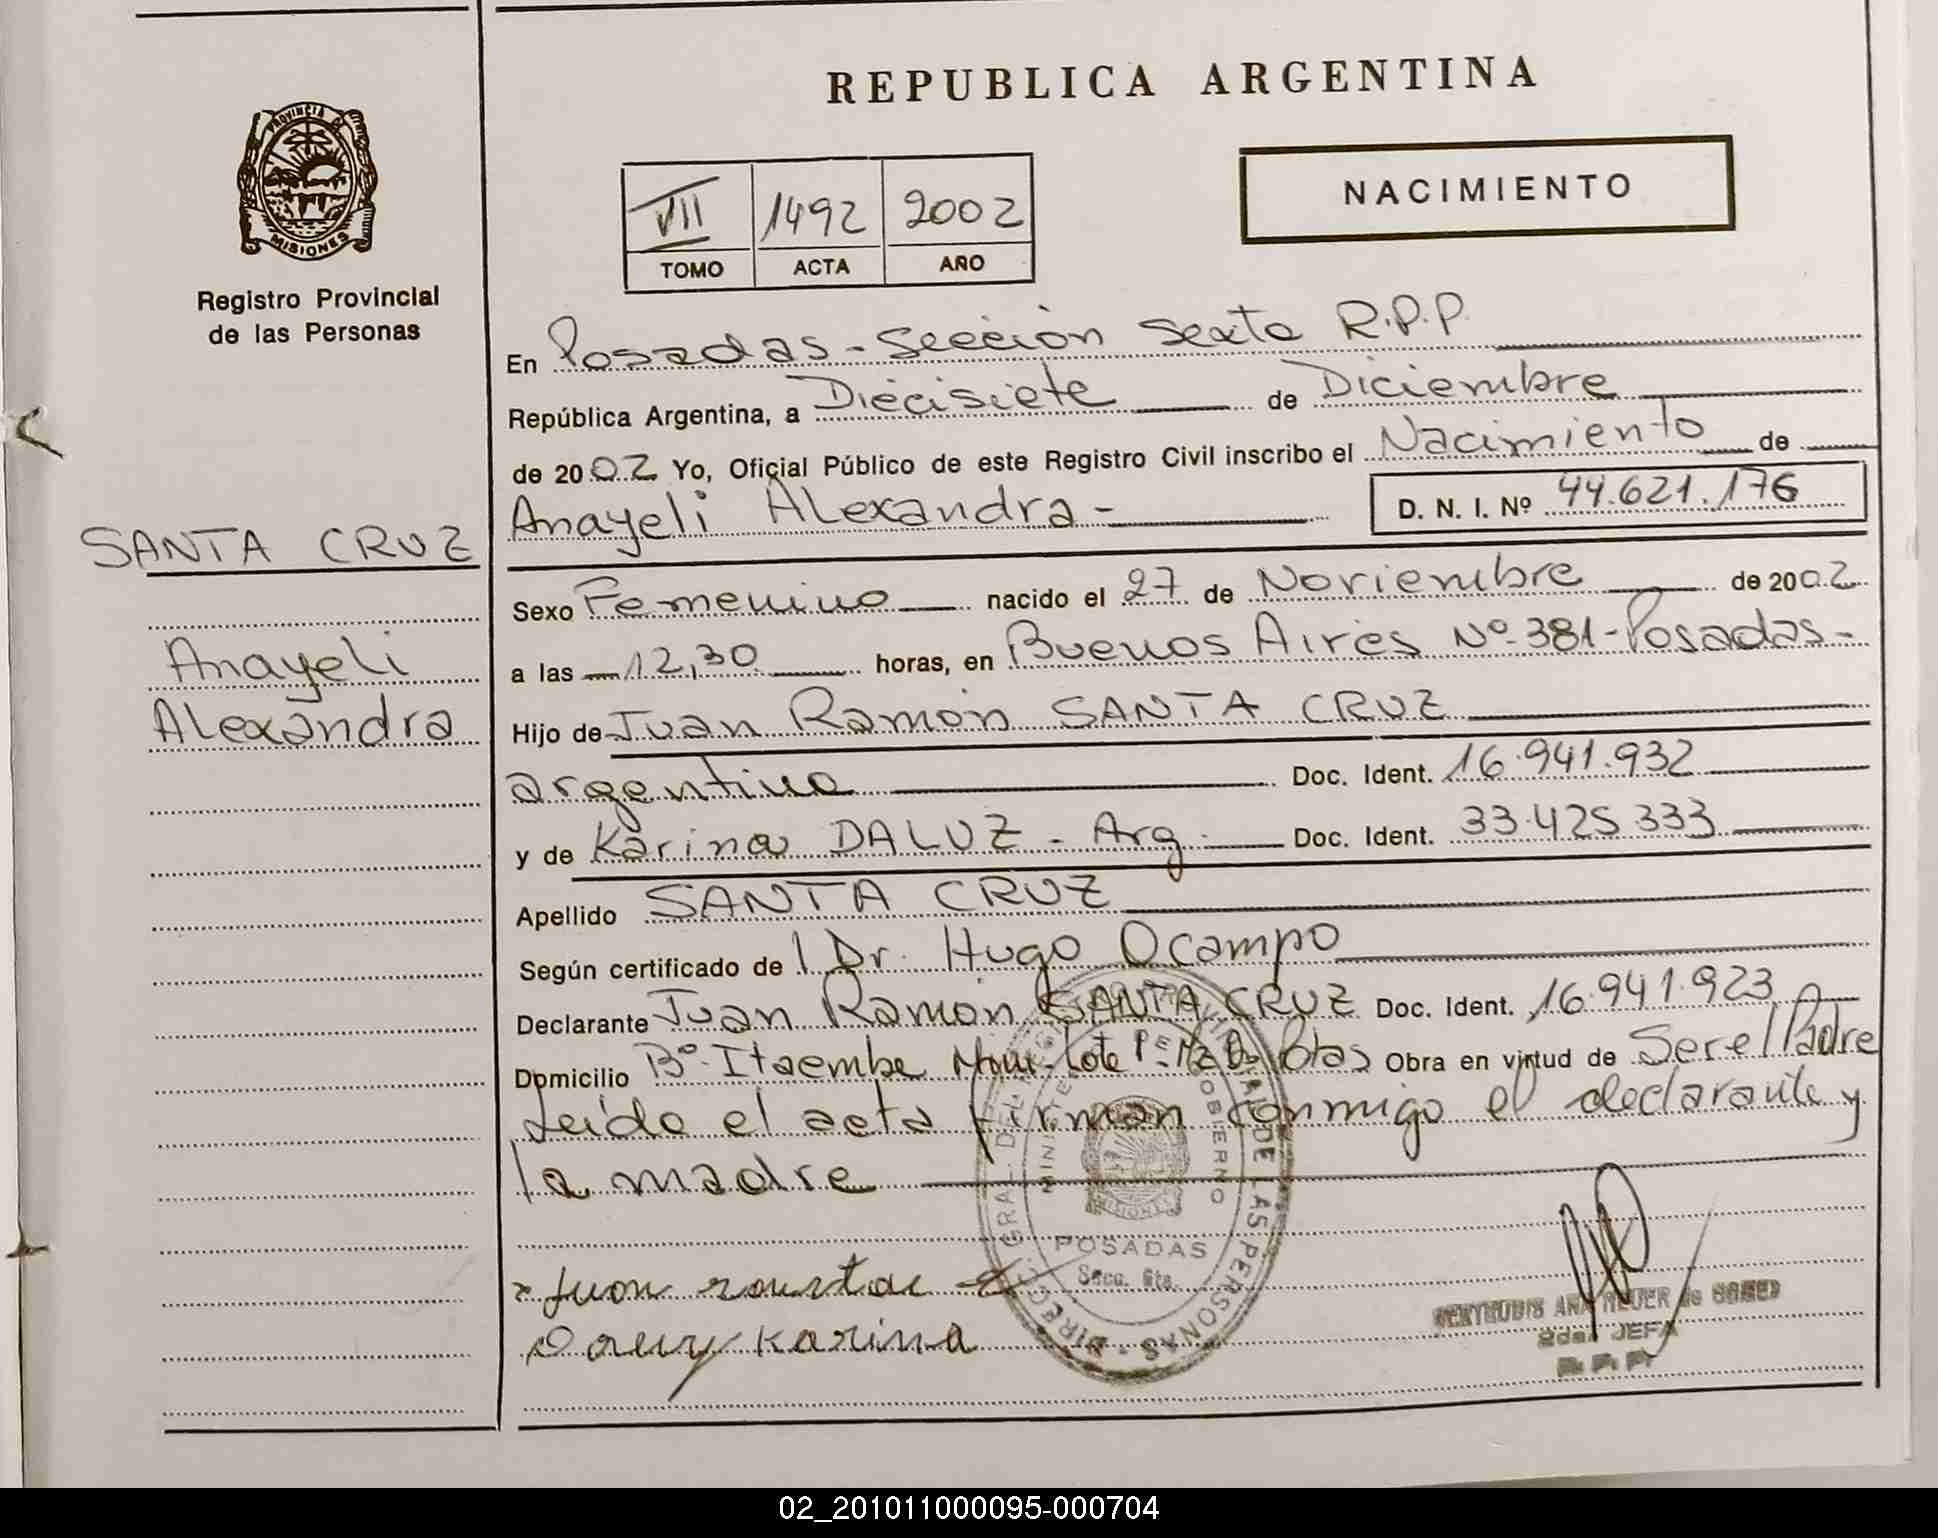 REPUBLICA ARGENTINA
PROVINCIA DE
MISIONES
Registro Provincial
de las Personas
VII 1492 2002
TOMO ACTA AÑO
NACIMIENTO
En Posadas - Sección Sexta R.P.P.
República Argentina, a Diecisiete de Diciembre
de 2002 Yo, Oficial Público de este Registro Civil inscribo el Nacimiento de
Anayeli Alexandra - D. N. I. Nº 44.621.176
SANTA CRUZ
Anayeli
Alexandra
Sexo Femenino nacido el 27 de Noviembre de 2002
a las 12,30 horas, en Buenos Aires Nº 381 - Posadas -
Hijo de Juan Ramón SANTA CRUZ
argentino Doc. Ident. 16.941.932
y de Karina DALUZ - Arg. Doc. Ident. 33.425.333
Apellido SANTA CRUZ
Según certificado de l Dr. Hugo Ocampo
Declarante Juan Ramón SANTA CRUZ Doc. Ident. 16.941.923
Domicilio Bº Itaembe Mini Lote Pdas Obra en virtud de Ser el Padre
Leída el acta firman conmigo el declarante y
la madre
Juan
Karina
DIRECC. GRAL. DEL REGISTRO PROVINCIAL DE LAS PERSONAS
MINISTERIO GOBIERNO
MISIONES
POSADAS
Secc. 6ta.
2da. JEFA
R. P. P.
02_201011000095-000704